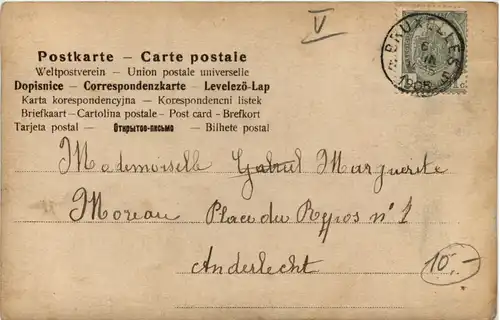 V
BRUXELLES
1905
Postkarte – Carte postale
Weltpostverein – Union postale universelle
Dopisnice – Correspondenzkarte – Levelező-Lap
Karta korespondencyjna – Korespondencni listek
Briefkaart – Cartolina postale – Post card – Brefkort
Tarjeta postal – Открытое-письмо – Bilhete postal
Mademoiselle Gabriel Marguerite
Moreau Place du Repos n° 1
Anderlecht
10.-